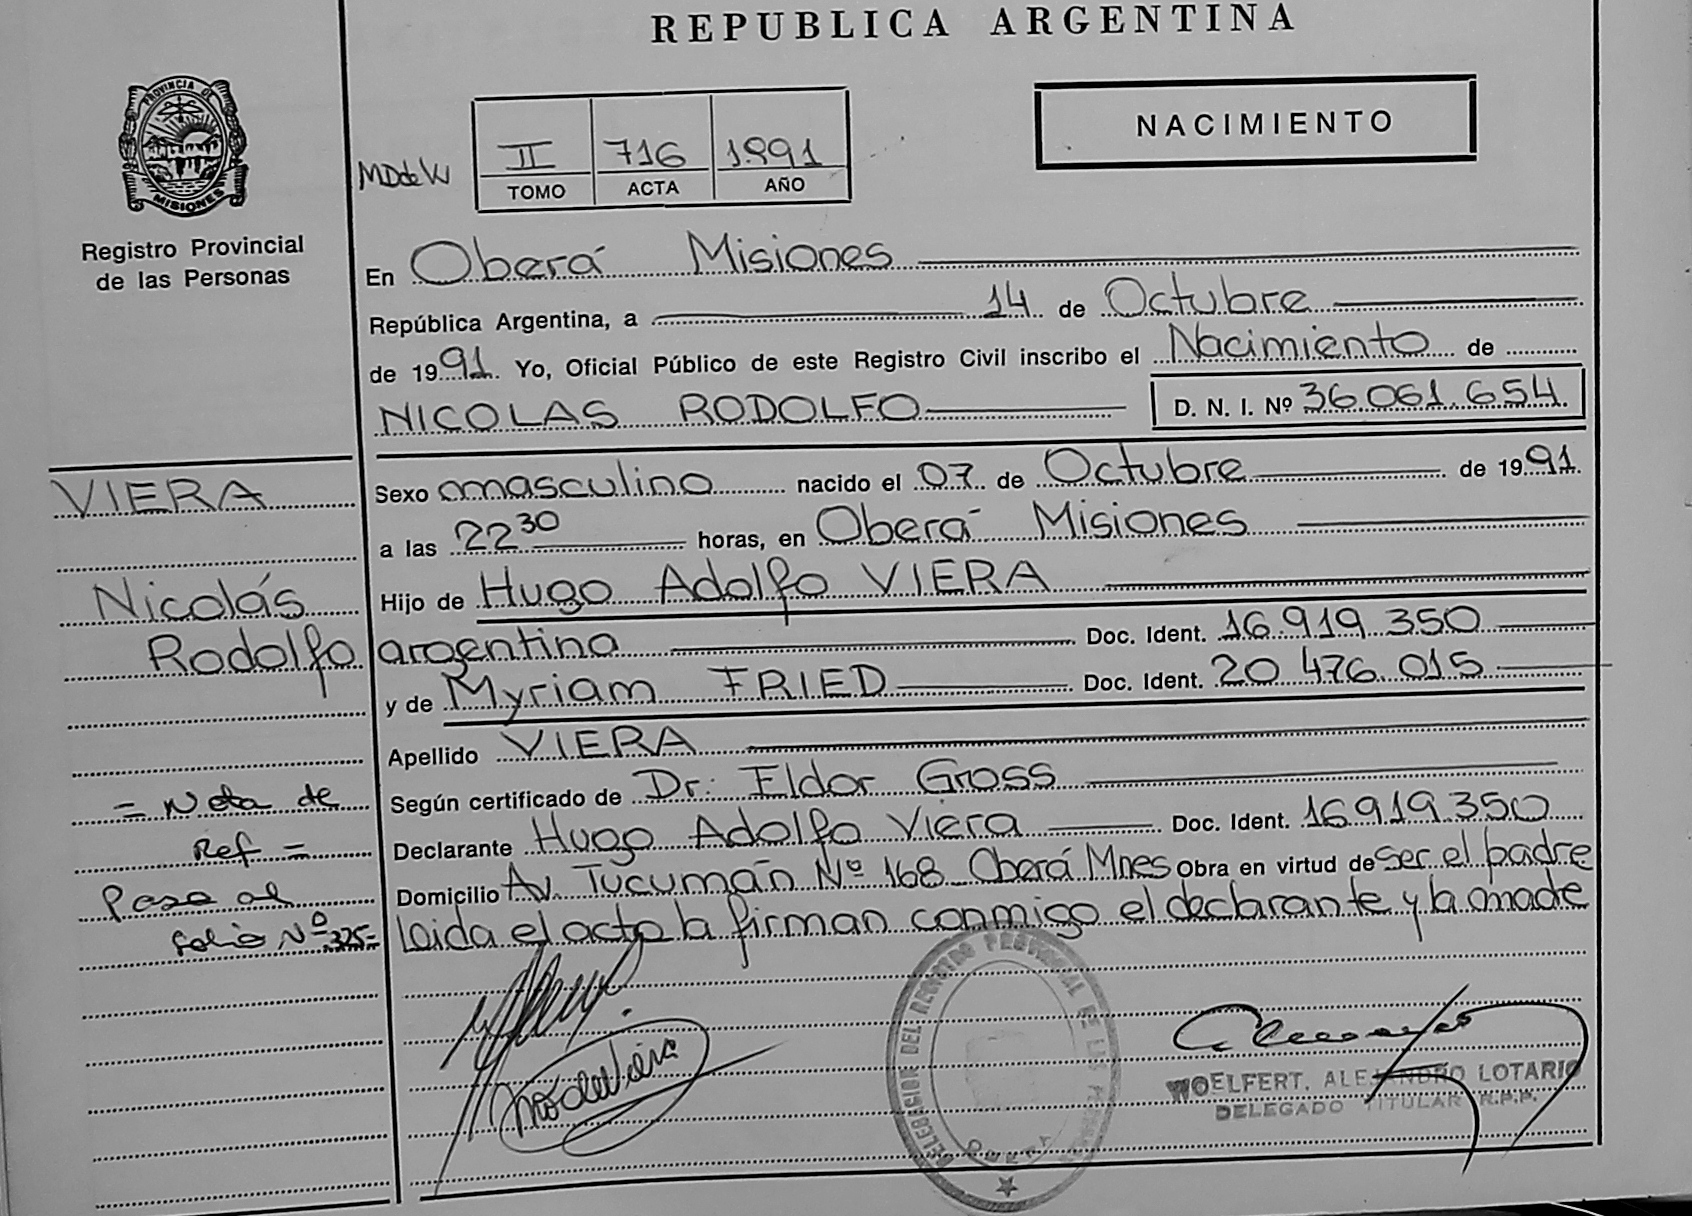 REPUBLICA ARGENTINA
PROVINCIA DE
MISIONES
Registro Provincial
de las Personas
MDdeW
II 716 1991
TOMO ACTA AÑO
NACIMIENTO
En Oberá Misiones
República Argentina, a 14 de Octubre
de 1991. Yo, Oficial Público de este Registro Civil inscribo el Nacimiento de
NICOLAS RODOLFO D. N. I. Nº 36.061.654.
Sexo masculino nacido el 07 de Octubre de 1991.
a las 22 30 horas, en Oberá Misiones
Hijo de Hugo Adolfo VIERA
argentino Doc. Ident. 16.919.350
y de Myriam FRIED Doc. Ident. 20.476.015
Apellido VIERA
Según certificado de Dr: Eldor Gross
Declarante Hugo Adolfo Viera Doc. Ident. 16919.350
Domicilio Av. Tucumán Nº 168 Oberá Mnes Obra en virtud de ser el padre
Leida el acta la firman conmigo el declarante y la madre
VIERA
Nicolás
Rodolfo
= Nota de
Ref =
Pasa al
folio Nº 325=
DELEGACION DEL REGISTRO PROVINCIAL DE LAS PERSONAS
OBERA
WOELFERT, ALEJANDRO LOTARIO
DELEGADO TITULAR R.P.P.